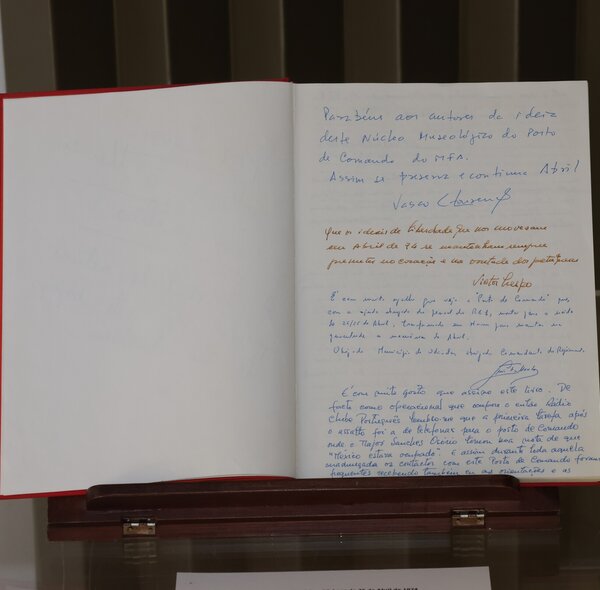 Parabéns aos autores da ideia
deste Núcleo Museológico do Posto
de Comando do MFA.
Assim se preserva e continua Abril
Vasco Lourenço
Que os ideais de liberdade que nos moveram
em Abril de 74 se mantenham sempre
presentes no coração e na vontade dos portugueses
Victor Crespo
É com muito orgulho que vejo o "Posto de Comando" que
com a ajuda
de 24/25 de Abril,
juventude a memória de Abril.
Obrigado Município de Odivelas, obrigado Comandante do Regimento
É com muito gosto que assino este livro. De
facto como operacional que ocupou o então Rádio
Clube Português lembro-me que a primeira tarefa após
o assalto foi a de telefonar para o posto de Comando
onde o Major Sanches Osório tomou boa nota de que
"México estava ocupado". E assim durante toda aquela
madrugada os contactos com este Posto de Comando foram
frequentes recebendo também eu as orientações e as